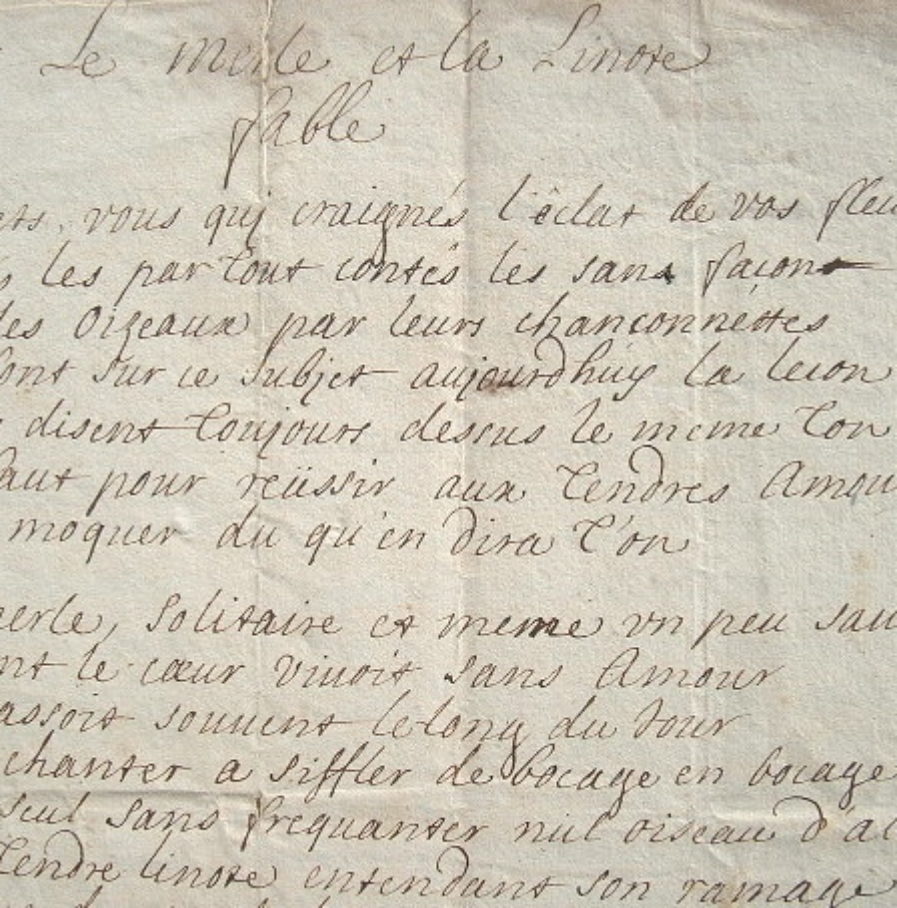 Le merle et la Linote
fable
ets, vous quj craignés l'éclat de vos fleu
les par tout contés les sans façons
les oizeaux par leurs chanconnéttes
font sur ce subjet aujourdhuy la lecon
disent toujours dessus le meme ton
faut pour reüssir aux tendres Amou
moquer du qu'en dira t'on
erle, solitaire et meme vn peu sau
nt le cœur viuoit sans Amour
assoit souuent le long du Jour
chanter a siffler de bocage en bocage
seul sans frequanter nul oiseau d'al
tendre linote entendant son ramage